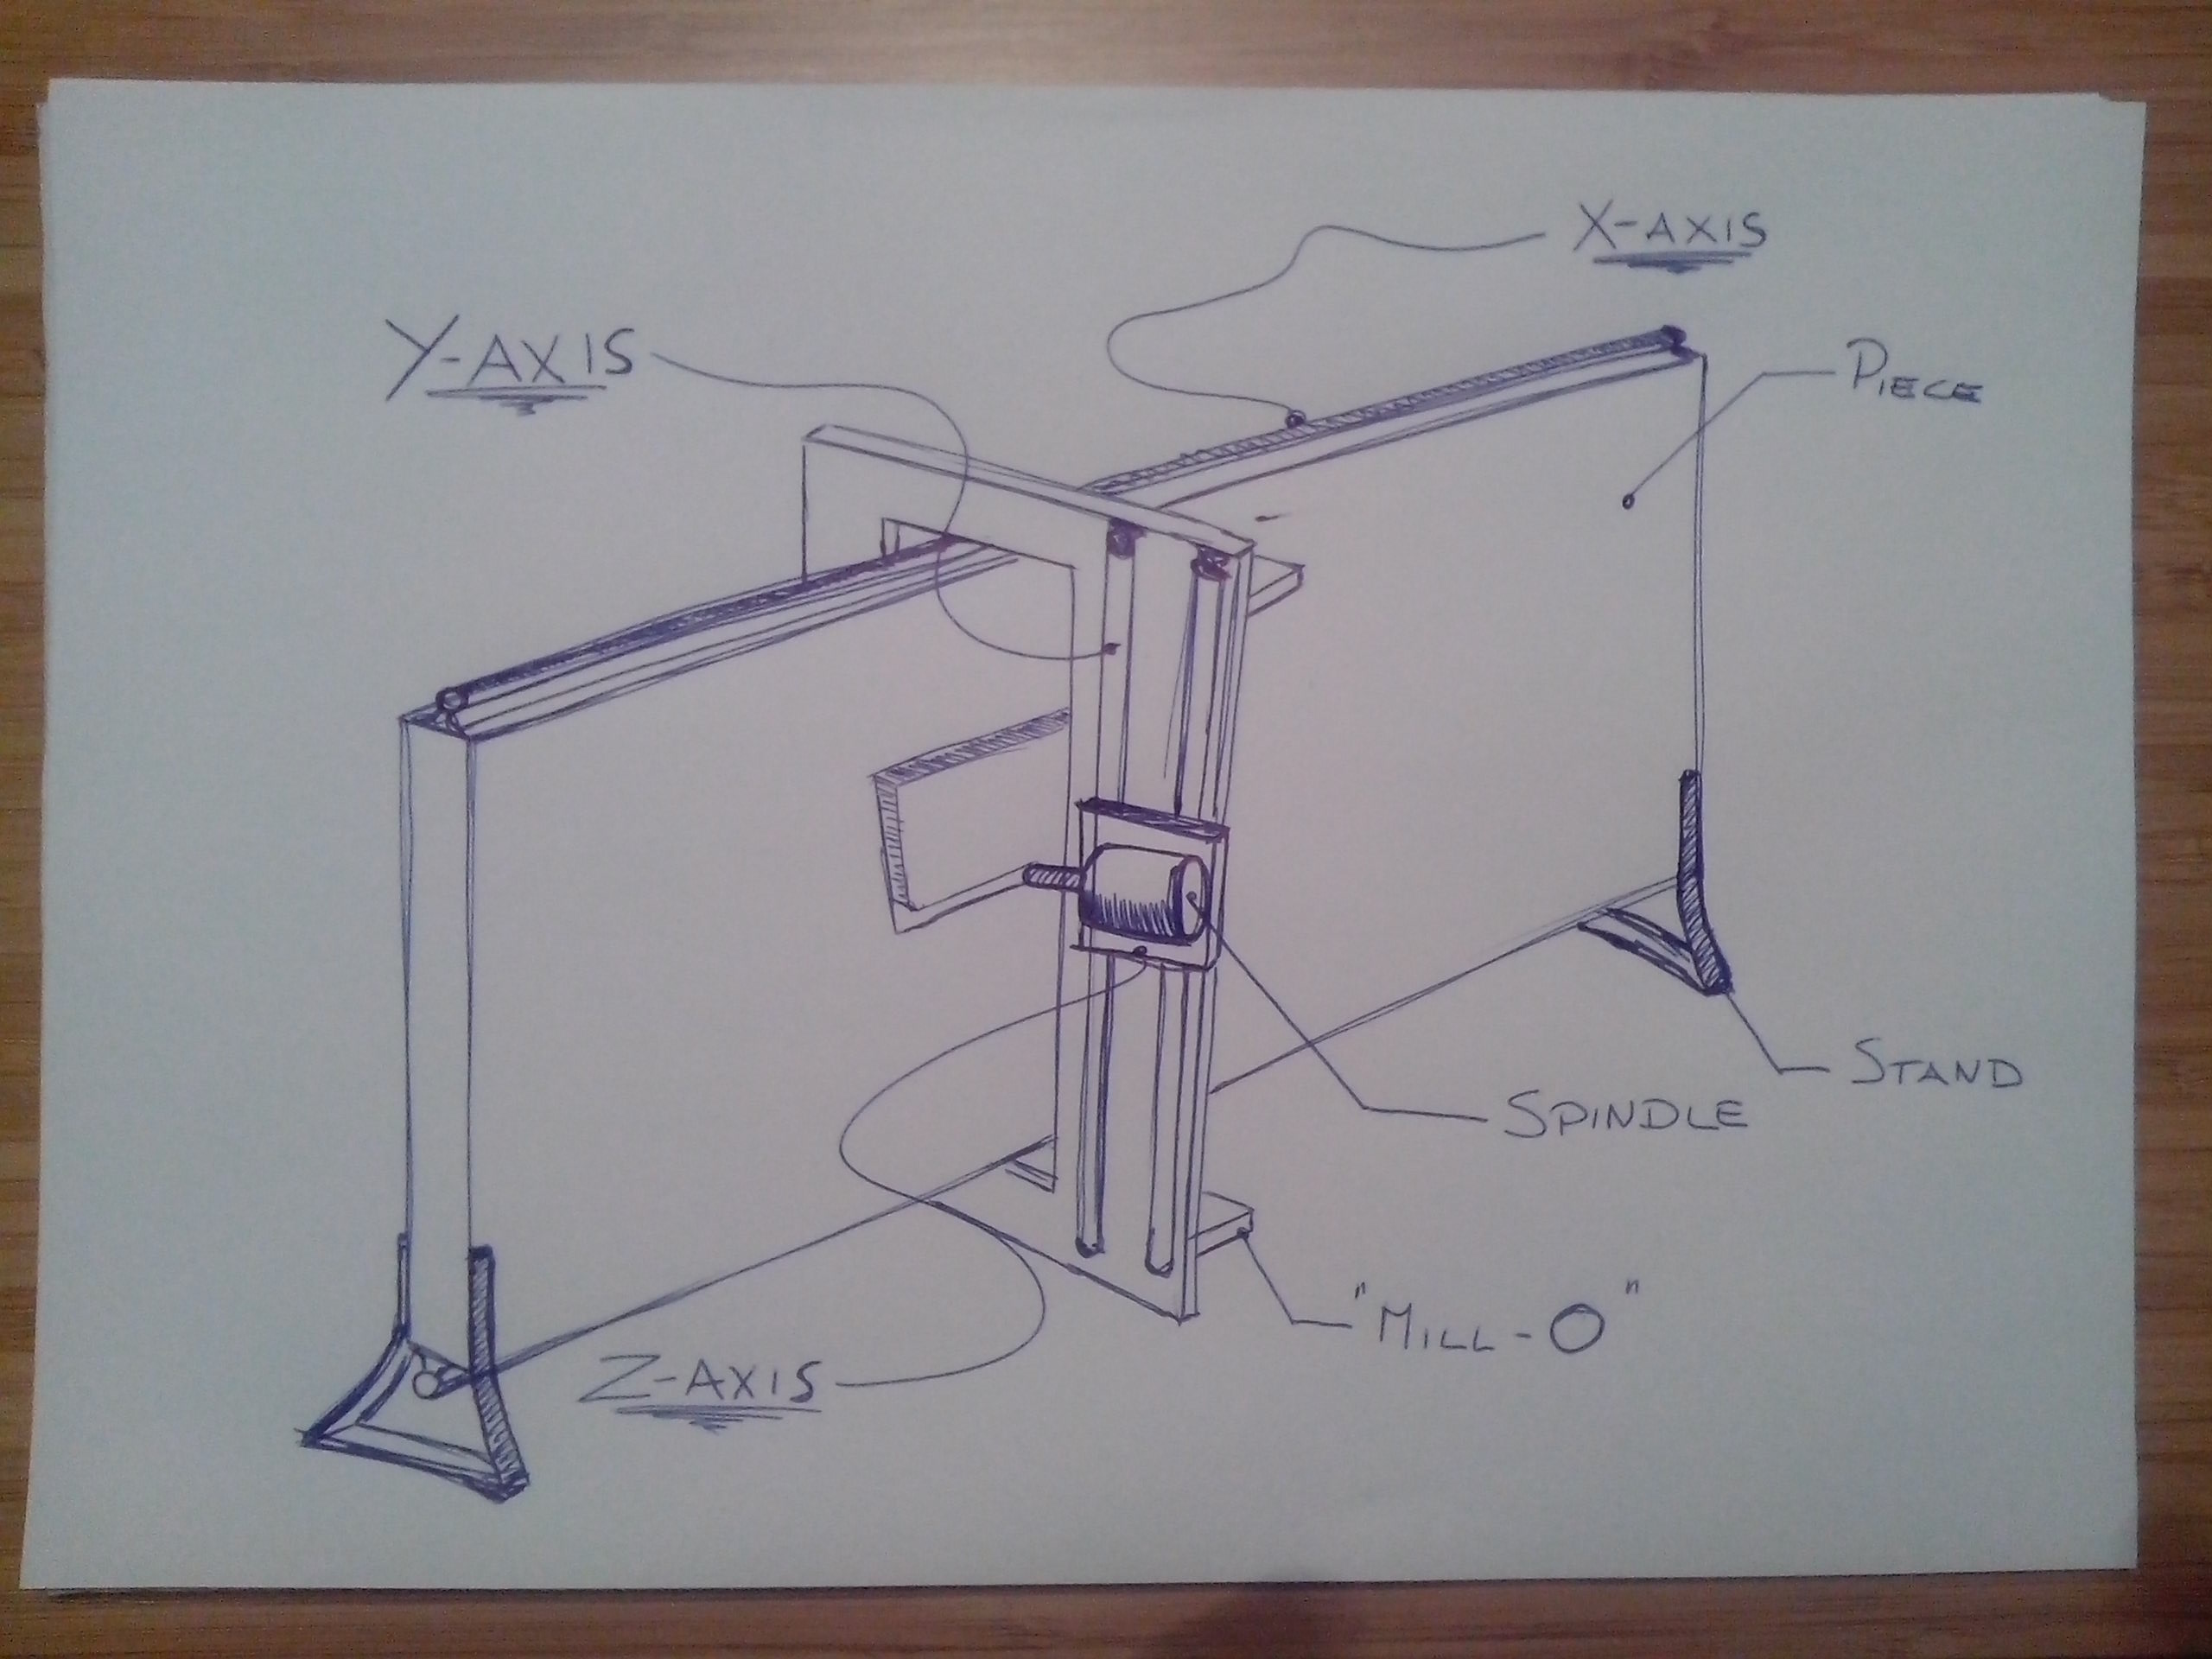 X-AXIS
Y-AXIS
PIECE
STAND
SPINDLE
"MILL-O"
Z-AXIS